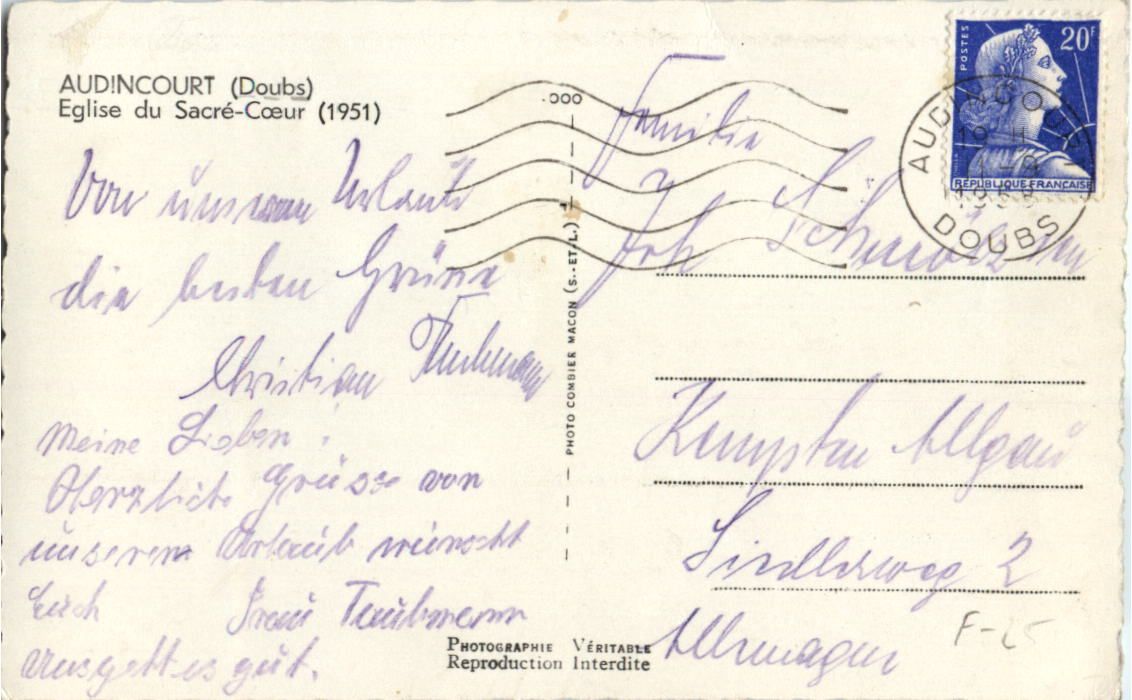 AUDINCOURT (Doubs)
Eglise du Sacré-Cœur (1951)
Von unseren Urlaub
die besten Grüsse
Christian Taubmann
Meine Lieben!
Herzliche Grüsse von
unserem Urlaub wünscht
Euch Frau Taubmann
Uns gett es gut.
PHOTO COMBIER MACON (S.-ET-L.)
PHOTOGRAPHIE VÉRITABLE
Reproduction Interdite
POSTES 20F
RÉPUBLIQUE FRANÇAISE
AUDINCOURT
DOUBS
Familie
Joh
Kempten Allgäu
Siedlerweg 2
Allemagne
F-25